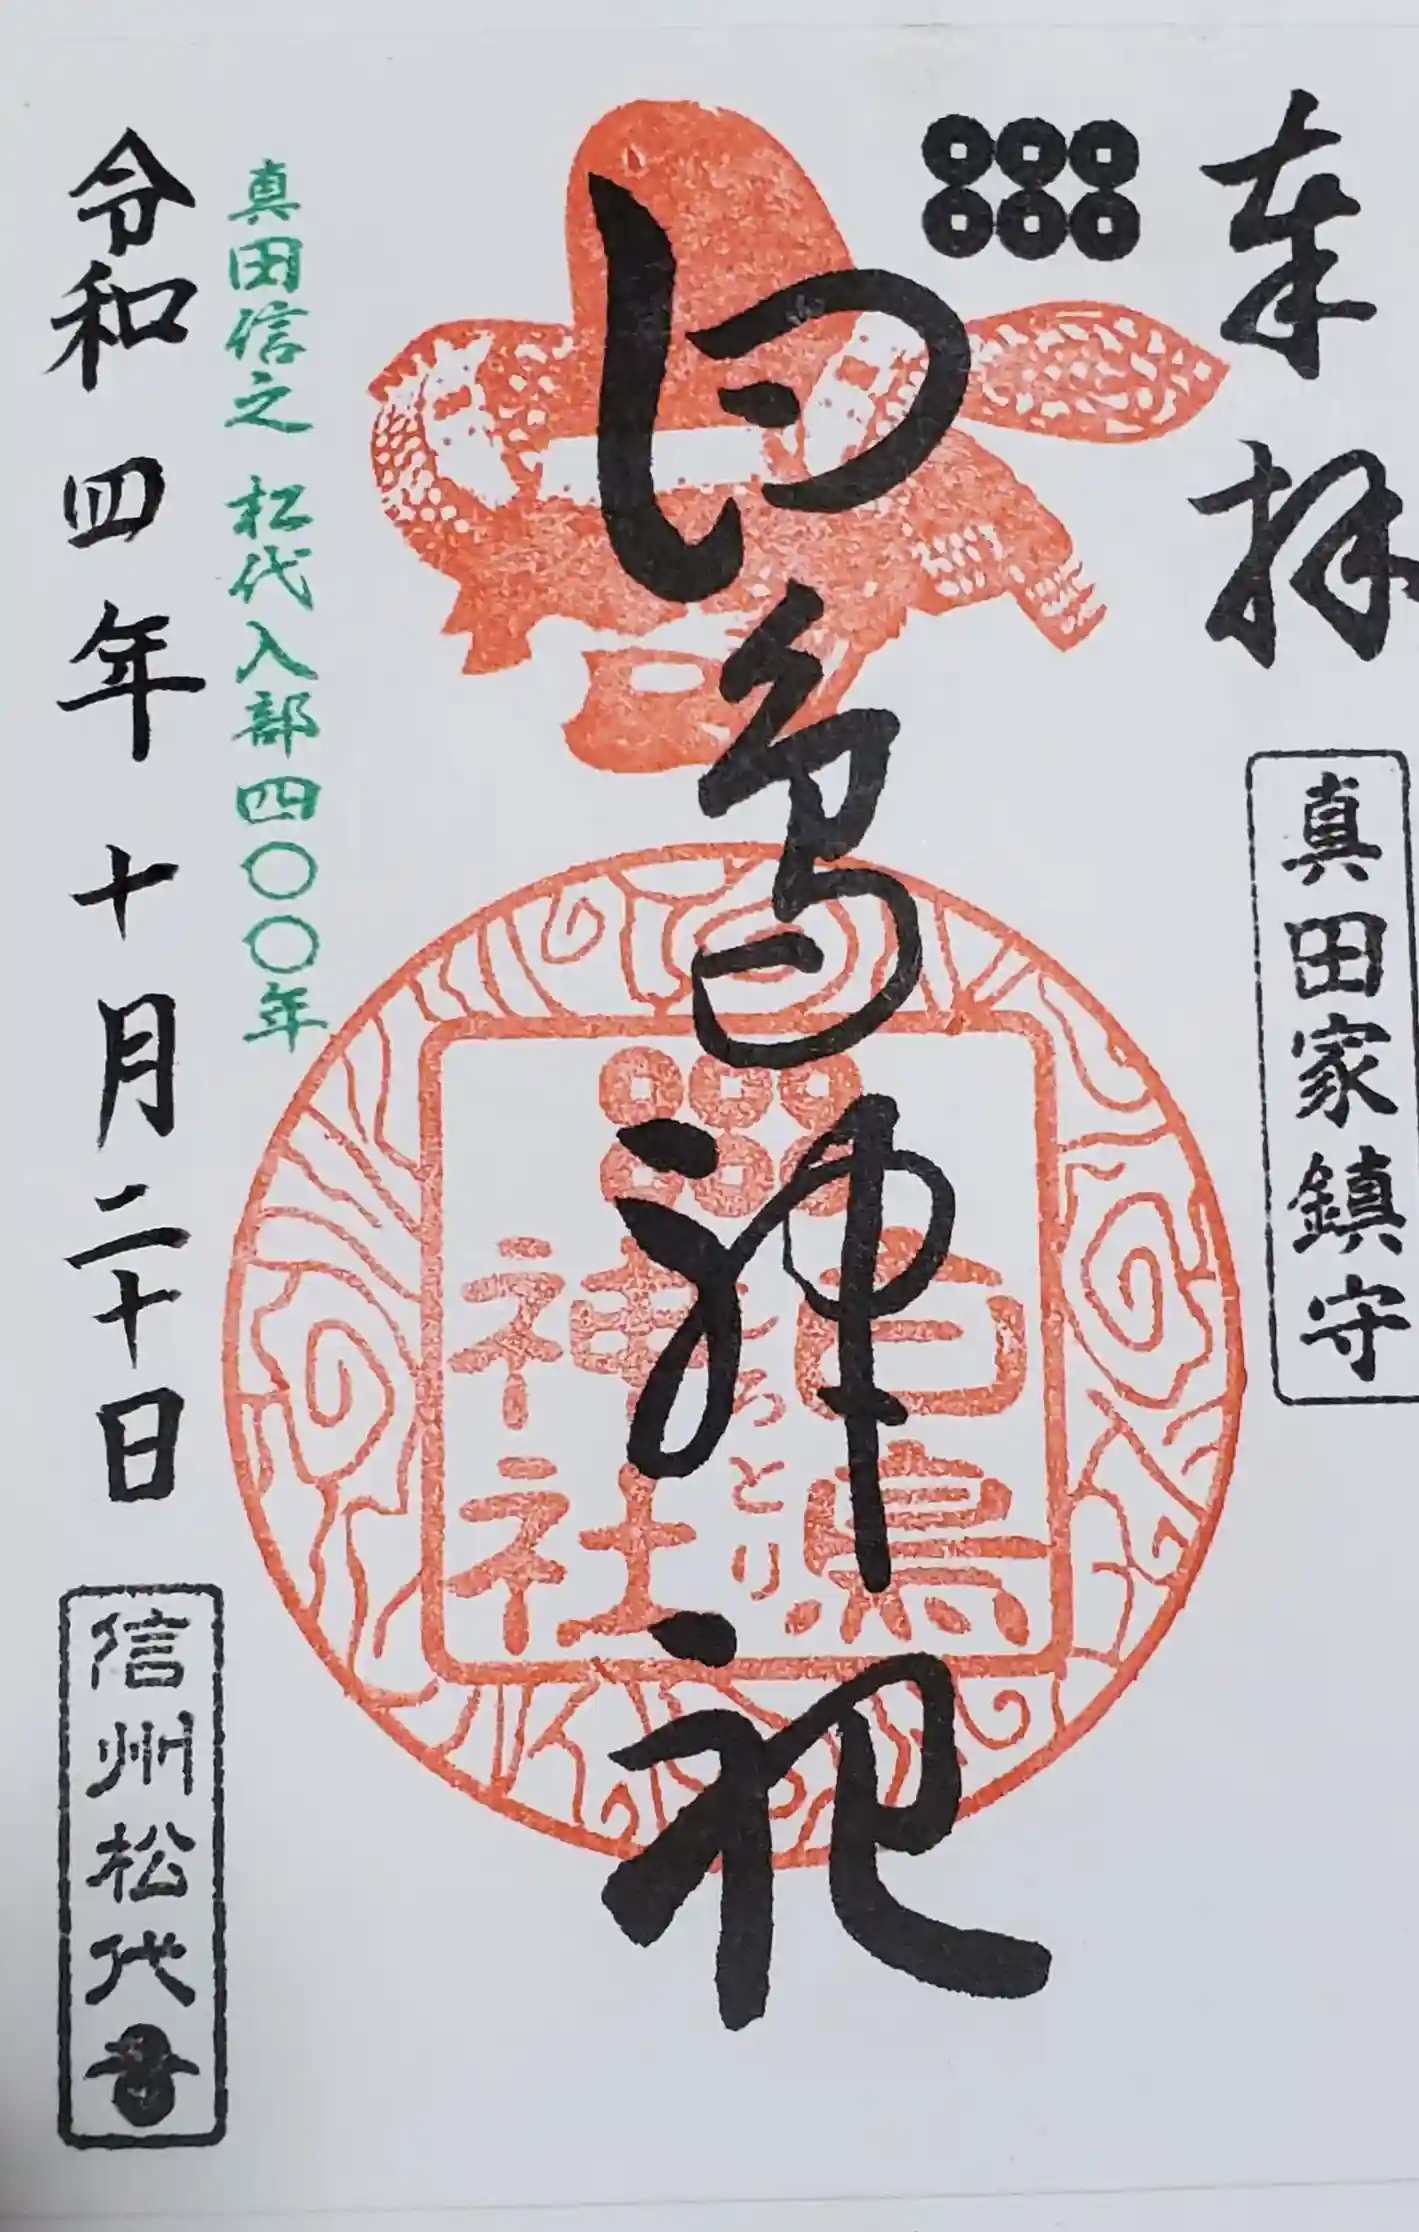 奉拝
真田家鎮守
白鳥神社
白鳥
しろとり
神社
神社
真田信之 松代入部四〇〇年
令和四年十月二十日
信州松代